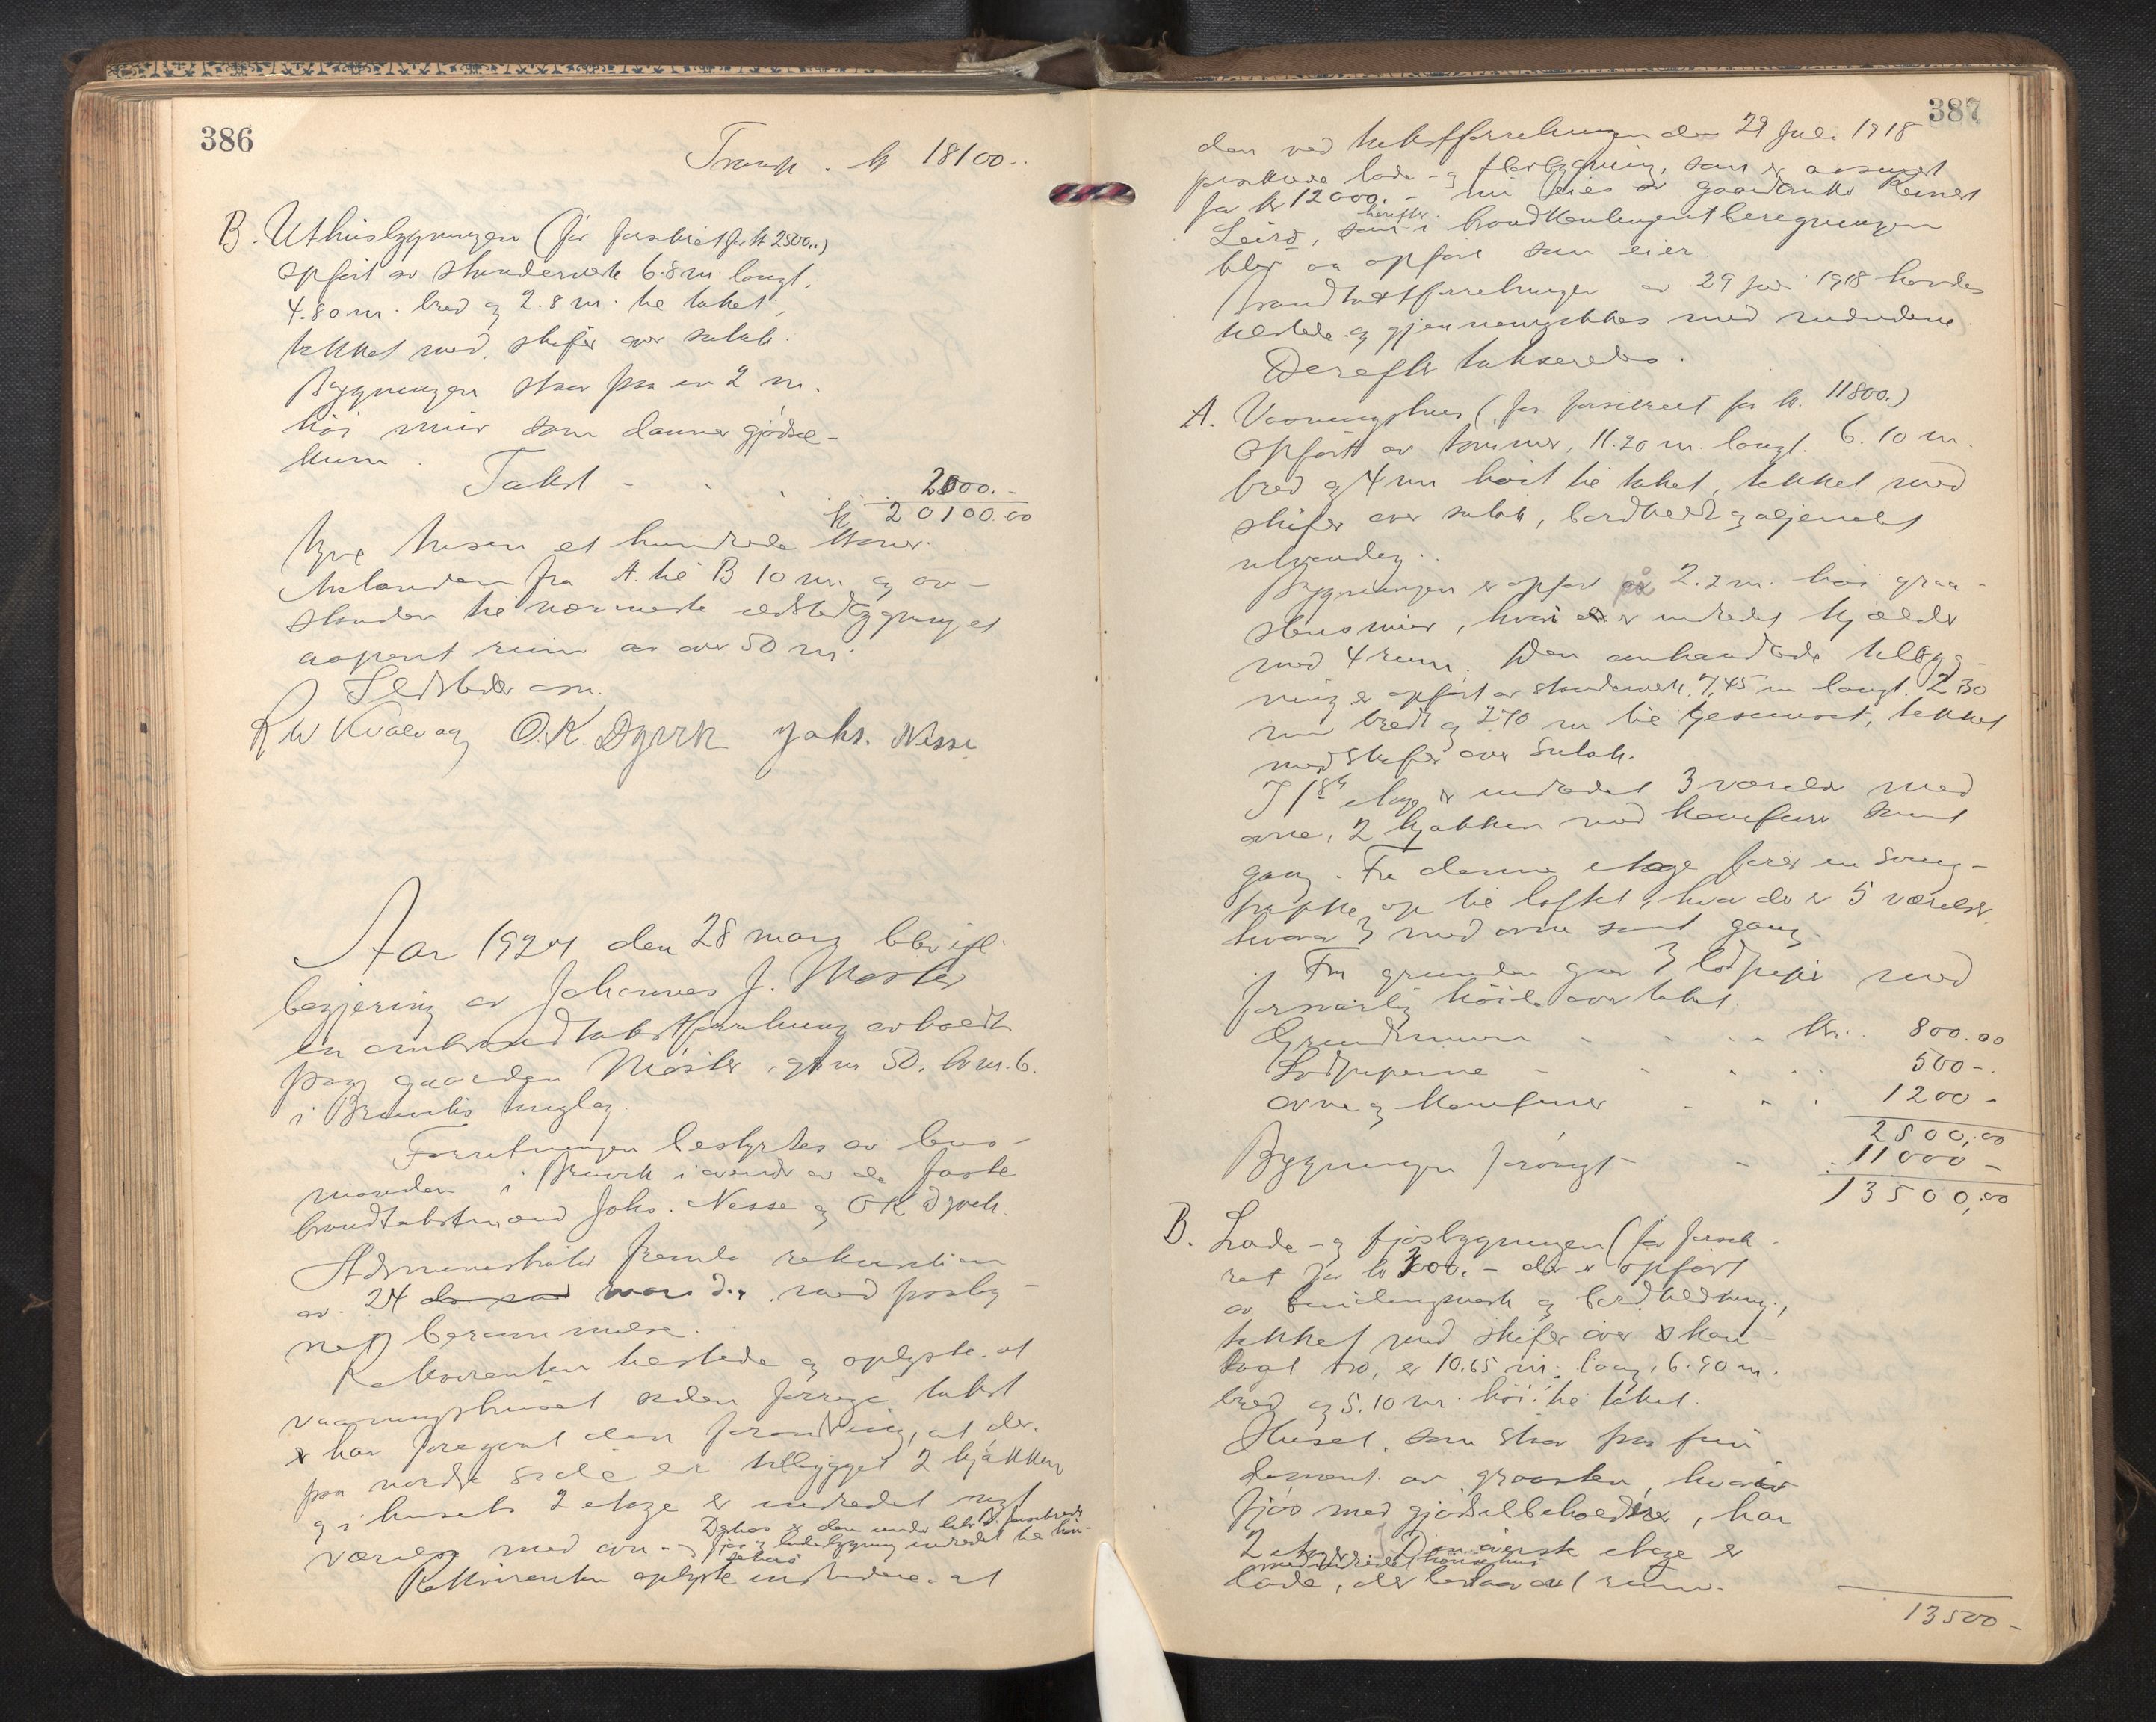 386
Transp. kr 18100..
B. Uthusbygningen (før forsikret for kr 2500..)
opført av stenderverk 6.8 m. langt,
4.80 m. bred og 2.8 m. til taket,
tekket med skifer over sutak.
Bygningen staar paa en 2 m.
høi mur som danner gjødsel-
kum.
Takst - . . . 2000.-
kr 20100.00
tyve tusen et hundrede kroner.
Avstanden fra A. til B 10 m. og av-
standen til nærmeste ildstedbygning et
aapent rum av over 50 m.
Ildsteder som.
R W Kvalvag O. K. Dyvik Johs. Nesse
Aar 1924 den 28 mars blev ifl.
begjering av Johannes J. Moster
en ombrandtakstforretning avholdt
paa gaarden Moster, gr. nr 50, br. nr. 6.
i Bruvik tinglag.
Forretningen bestyrtes av lens-
manden i Bruvik i overvær av de faste
brandtakstmænd Johs. Nesse og O K Dyvik.
Administrator fremla rekvisition
av 24 mars d.a. med paateg-
net berammelse.
Rekvirenten tilstede og oplyste at
vaaningshuset siden forrige takst
har foregaat den forandring, at der
paa nordre side er tilbygget 2 kjøkken
og i husets 2 etage er indredet nyt
værelse med ovn. - Dertil er den under litr B. forsikrede
fjøs og ladebygning indredet til høn-
sehus
Rekvirenten oplyste endvidere at
387
den ved takstforretningen den 29 juli 1918
forsikrede lade- og fløibygning, som er assurert
for kr 12000.- nu eies av gaardbruker Reinert
Leiro, som herefter i brandkontingentberegningen
blir at opføre som eier.
Brandtakstforretningen av 29 juli 1918 havdes
tilstede og gjennemgikkes med
Derefter takseredes.
A. Vaaningshus (før forsikret for kr. 11800.)
opført av tømmer, 11.20 m. langt. 6.10 m.
bred og 4 m høit til taket, tekket med
skifer over sutak, bordklædt og oljemalet
utvendig.
Bygningen er opført på 2.2 m. høi graa-
stensmur, hvori er indredet kjælder
med 4 rum. Den omhandlede tilbyg-
ning er opført av stenderverk 7,45 m langt. 2 30
m bredt og 2.70 m til gesimset, tekket
med skifer over sutak.
I 1ste etage er indredet 3 værelser med
ovne, 2 kjøkken med komfurer samt
gang. Fra denne etage fører en sving-
trappe op til loftet, hvor der er 5 værelser
hvorav 3 med ovne samt gang.
Fra grunden gaar 3 lodpiper med
forsvarlig høide over taket.
Grundmuren - - . . Kr. 800.00
Lodpiperne - - . . 500-.
ovne og komfurer . - . 1200 -
2500,00
Bygningen forøvrigt - - 11000 -
13500,00
B. Lade- og fjøsbygningen (før forsik-
ret for kr 3000.- der er opført
av bindingsverk og bordklædning,
tekket med skifer over skan-
lagt tro, er 10.65 m. lang, 6.90 m.
bred og 5.10 m. høi til taket.
Huset, som staar paa fun-
dament av graasten, hvori
fjøs med gjødselbeholder, har
2 etager. Den øverste etage er
med indredet hønsehus
lade, der bestaar av 1 rum.
13500 -